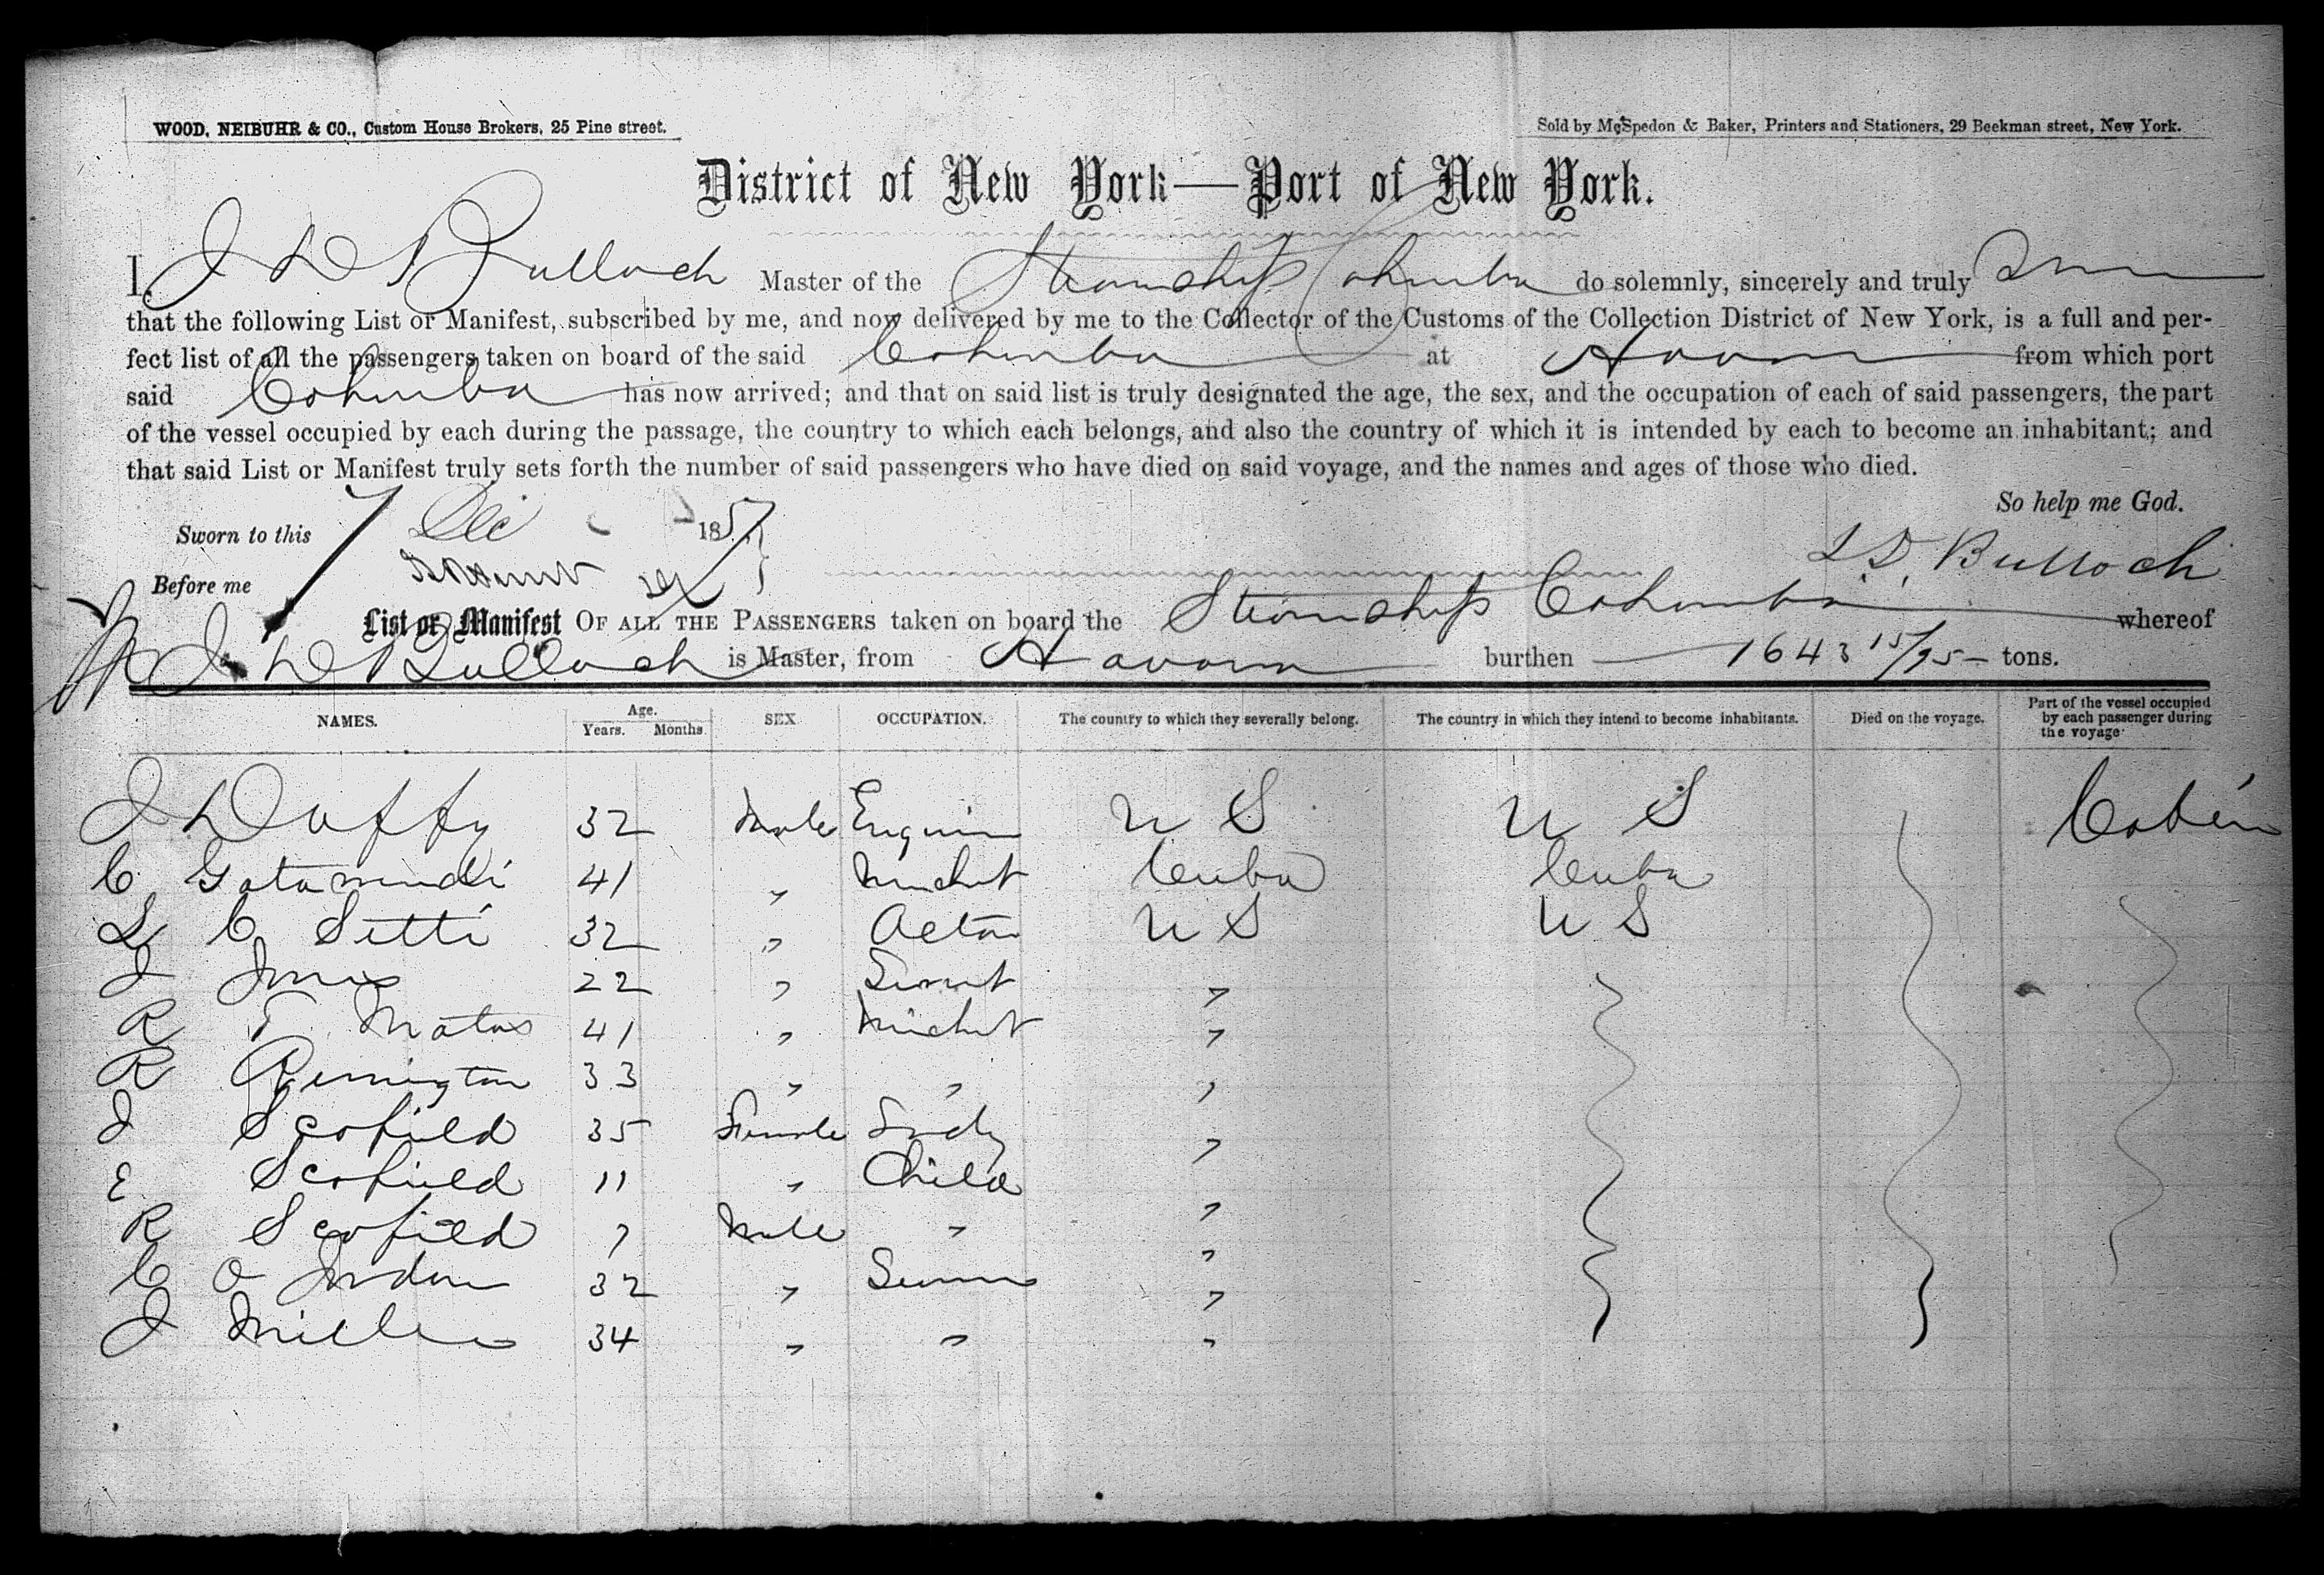 WOOD, NEIBUHR & CO., Custom House Brokers, 25 Pine street.
Sold by McSpedon & Baker, Printers and Stationers, 29 Beekman street, New York.
District of New York—Port of New York.
I, J D Bulloch Master of the Steamship Columbia do solemnly, sincerely and truly
that the following List or Manifest, subscribed by me, and now delivered by me to the Collector of the Customs of the Collection District of New York, is a full and per-
fect list of all the passengers taken on board of the said Columbia at Havana from which port
said Columbia has now arrived; and that on said list is truly designated the age, the sex, and the occupation of each of said passengers, the part
of the vessel occupied by each during the passage, the country to which each belongs, and also the country of which it is intended by each to become an inhabitant; and
that said List or Manifest truly sets forth the number of said passengers who have died on said voyage, and the names and ages of those who died.
So help me God.
Sworn to this 7 Dec 1857
J. D. Bulloch
Before me
List or Manifest OF ALL THE PASSENGERS taken on board the Steamship Columbia whereof
J D Bulloch is Master, from Havana burthen 1643 15/95 tons.
NAMES. Age. Years. Months SEX OCCUPATION. The country to which they severally belong. The country in which they intend to become inhabitants. Died on the voyage. Part of the vessel occupied by each passenger during the voyage
J D Duffy 32 Male U S U S Cabin
C 41 " Mercht Cuba Cuba
L C Setti 32 " Actor U S U S
J 22 " Servt "
R T 41 " Mercht "
R Remington 33 " " "
J Scofield 35 Female Lady "
E Scofield 11 " Child "
R Scofield 7 Male " "
C O Jordan 32 " "
J Miller 34 " " "